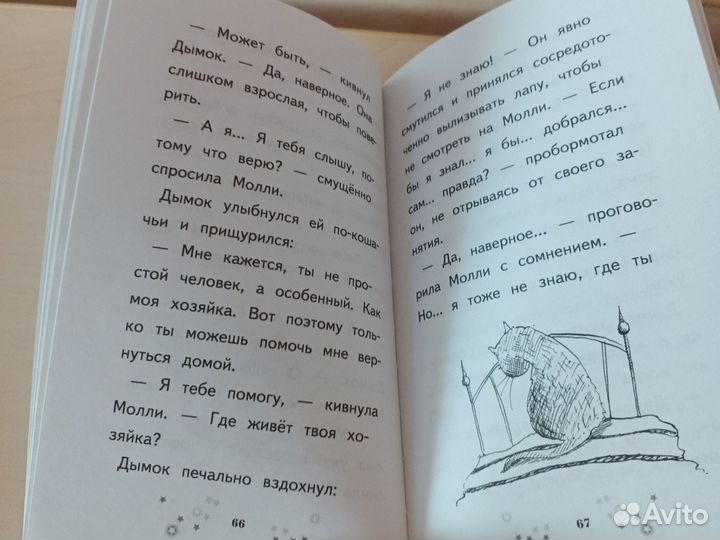 — Может быть, — кивнул
Дымок. — Да, наверное. Она
слишком взрослая, чтобы пове-
рить.
— А я... Я тебя слышу, по-
тому что верю? — смущённо
спросила Молли.
Дымок улыбнулся ей по-коша-
чьи и прищурился:
— Мне кажется, ты не про-
стой человек, а особенный. Как
моя хозяйка. Вот поэтому толь-
ко ты можешь помочь мне вер-
нуться домой.
— Я тебе помогу, — кивнула
Молли. — Где живёт твоя хо-
зяйка?
Дымок печально вздохнул:
66
— Я не знаю! — Он явно
смутился и принялся сосредото-
ченно вылизывать лапу, чтобы
не смотреть на Молли. — Если
бы я знал... я бы... добрался...
сам... правда? — пробормотал
он, не отрываясь от своего за-
нятия.
— Да, наверное... — прогово-
рила Молли с сомнением. —
Но... я тоже не знаю, где ты
67
Avito